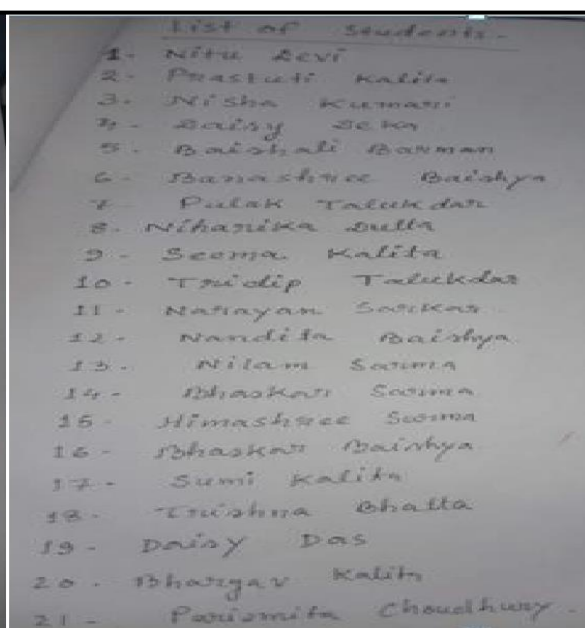 List of Students.
1- Nitu Devi
2- Prastuti Kalita
3- Nisha Kumari
4- Daisy Deka
5- Baishali Barman
6- Banashree Baishya
7- Pulak Talukdar
8- Niharika Dutta
9- Seema Kalita
10- Tridip Talukdar
11- Narayan Sarkar
12- Nandita Baishya
13- Nilam Sarma
14- Bhaskar Sarma
15- Himashree Sarma
16- Bhaskar Baishya
17- Sumi Kalita
18- Trishna Bhatta
19- Daisy Das
20- Bhargav Kalita
21- Parismita Choudhury